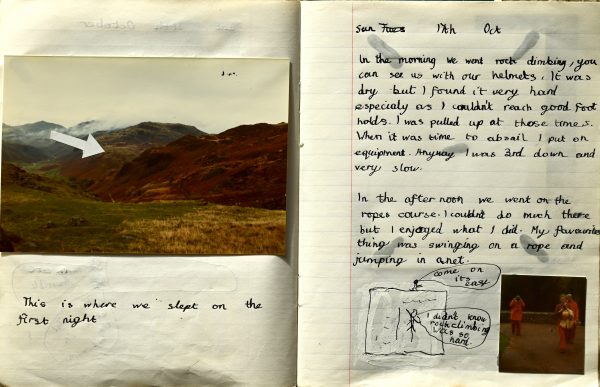 This is where we slept on the
first night
Sun Tues 17th Oct
In the morning we went rock climbing, you
can see us with our helmets. It was
dry but I found it very hard
especialy as I couldn't reach good foot
holds. I was pulled up at those times.
When it was time to absail I put on
equipment. Anyway I was 3rd down and
very slow.
In the after noon we went on the
ropes course. I couldnt do much there
but I enjoyed what I did. My favourite
thing was swinging on a rope and
jumping in a net.
come on
its
easy
I didn't know
rockclimbing
was so
hard.